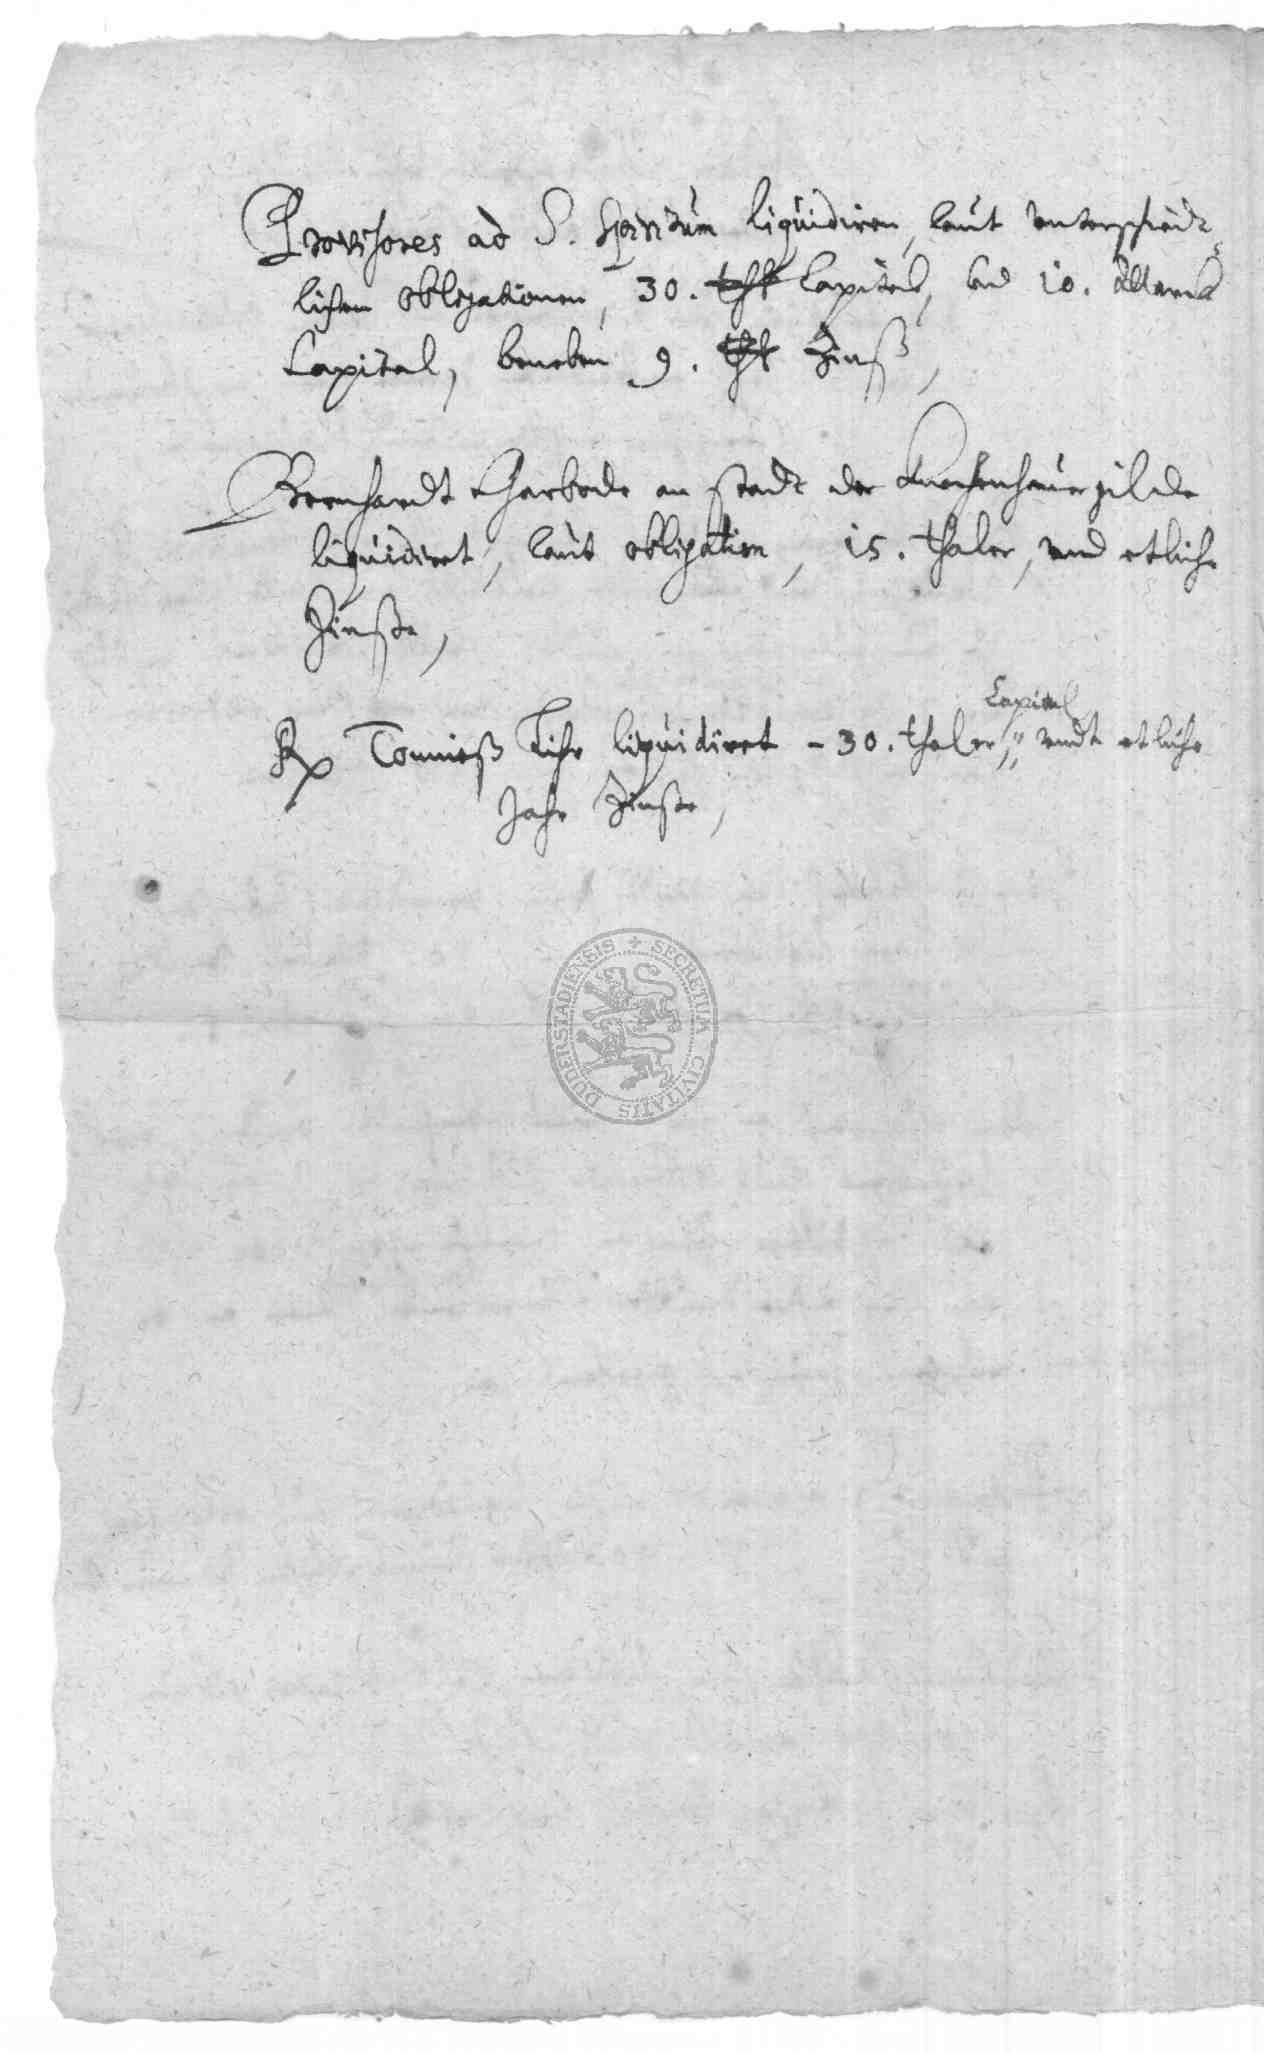 Provisores ad S. Spiritum liquidiren, laut unterschiedt
lichen obligationen, 30. thlr Capital, und 10. Marck
Capital, beneben 9. thlr Zinß,
Bernhardt Harbode an stadt der Knochenhauer gilde
liquidirt, laut obligation, 15. thaler, und etliche
Zinße,
Capital
Tonnieß liquidiret - 30. thaler, undt etliche
Jahr Zinße,
SECRETUM CIVITATIS DUDERSTADIENSIS